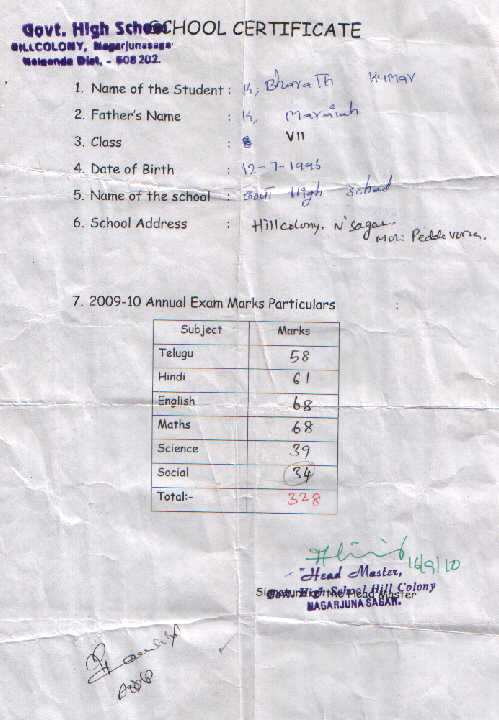 Govt. High School
SCHOOL CERTIFICATE
HILLCOLONY, Nagarjunasagar
Nalgonda Dist, - 508 202.
1. Name of the Student : K. Bharath Kumar
2. Father's Name : K. Maraiah
3. Class : VII
4. Date of Birth : 12-7-1996
5. Name of the school : Govt High School
6. School Address : Hillcolony. N'sagar.
Mdl: Peddavoora.
7. 2009-10 Annual Exam Marks Particulars :
Subject Marks
Telugu 58
Hindi 61
English 68
Maths 68
Science 39
Social 34
Total:- 328
16/9/10
Head Master,
Signature of the Head Master
Govt. High School Hill Colony
NAGARJUNA SAGAR.